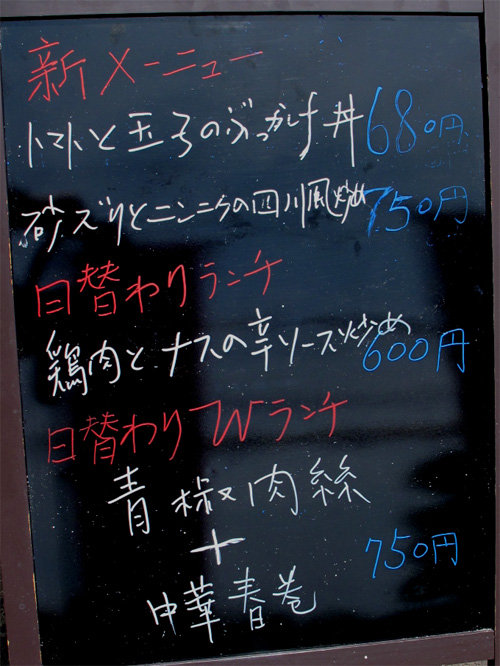 新メニュー
トマトと玉子のぶっかけ丼 680円
砂ズリとニンニクの四川風炒め 750円
日替わりランチ
鶏肉とナスの辛ソース炒め 600円
日替わりWランチ
青椒肉絲
+
750円
中華春巻